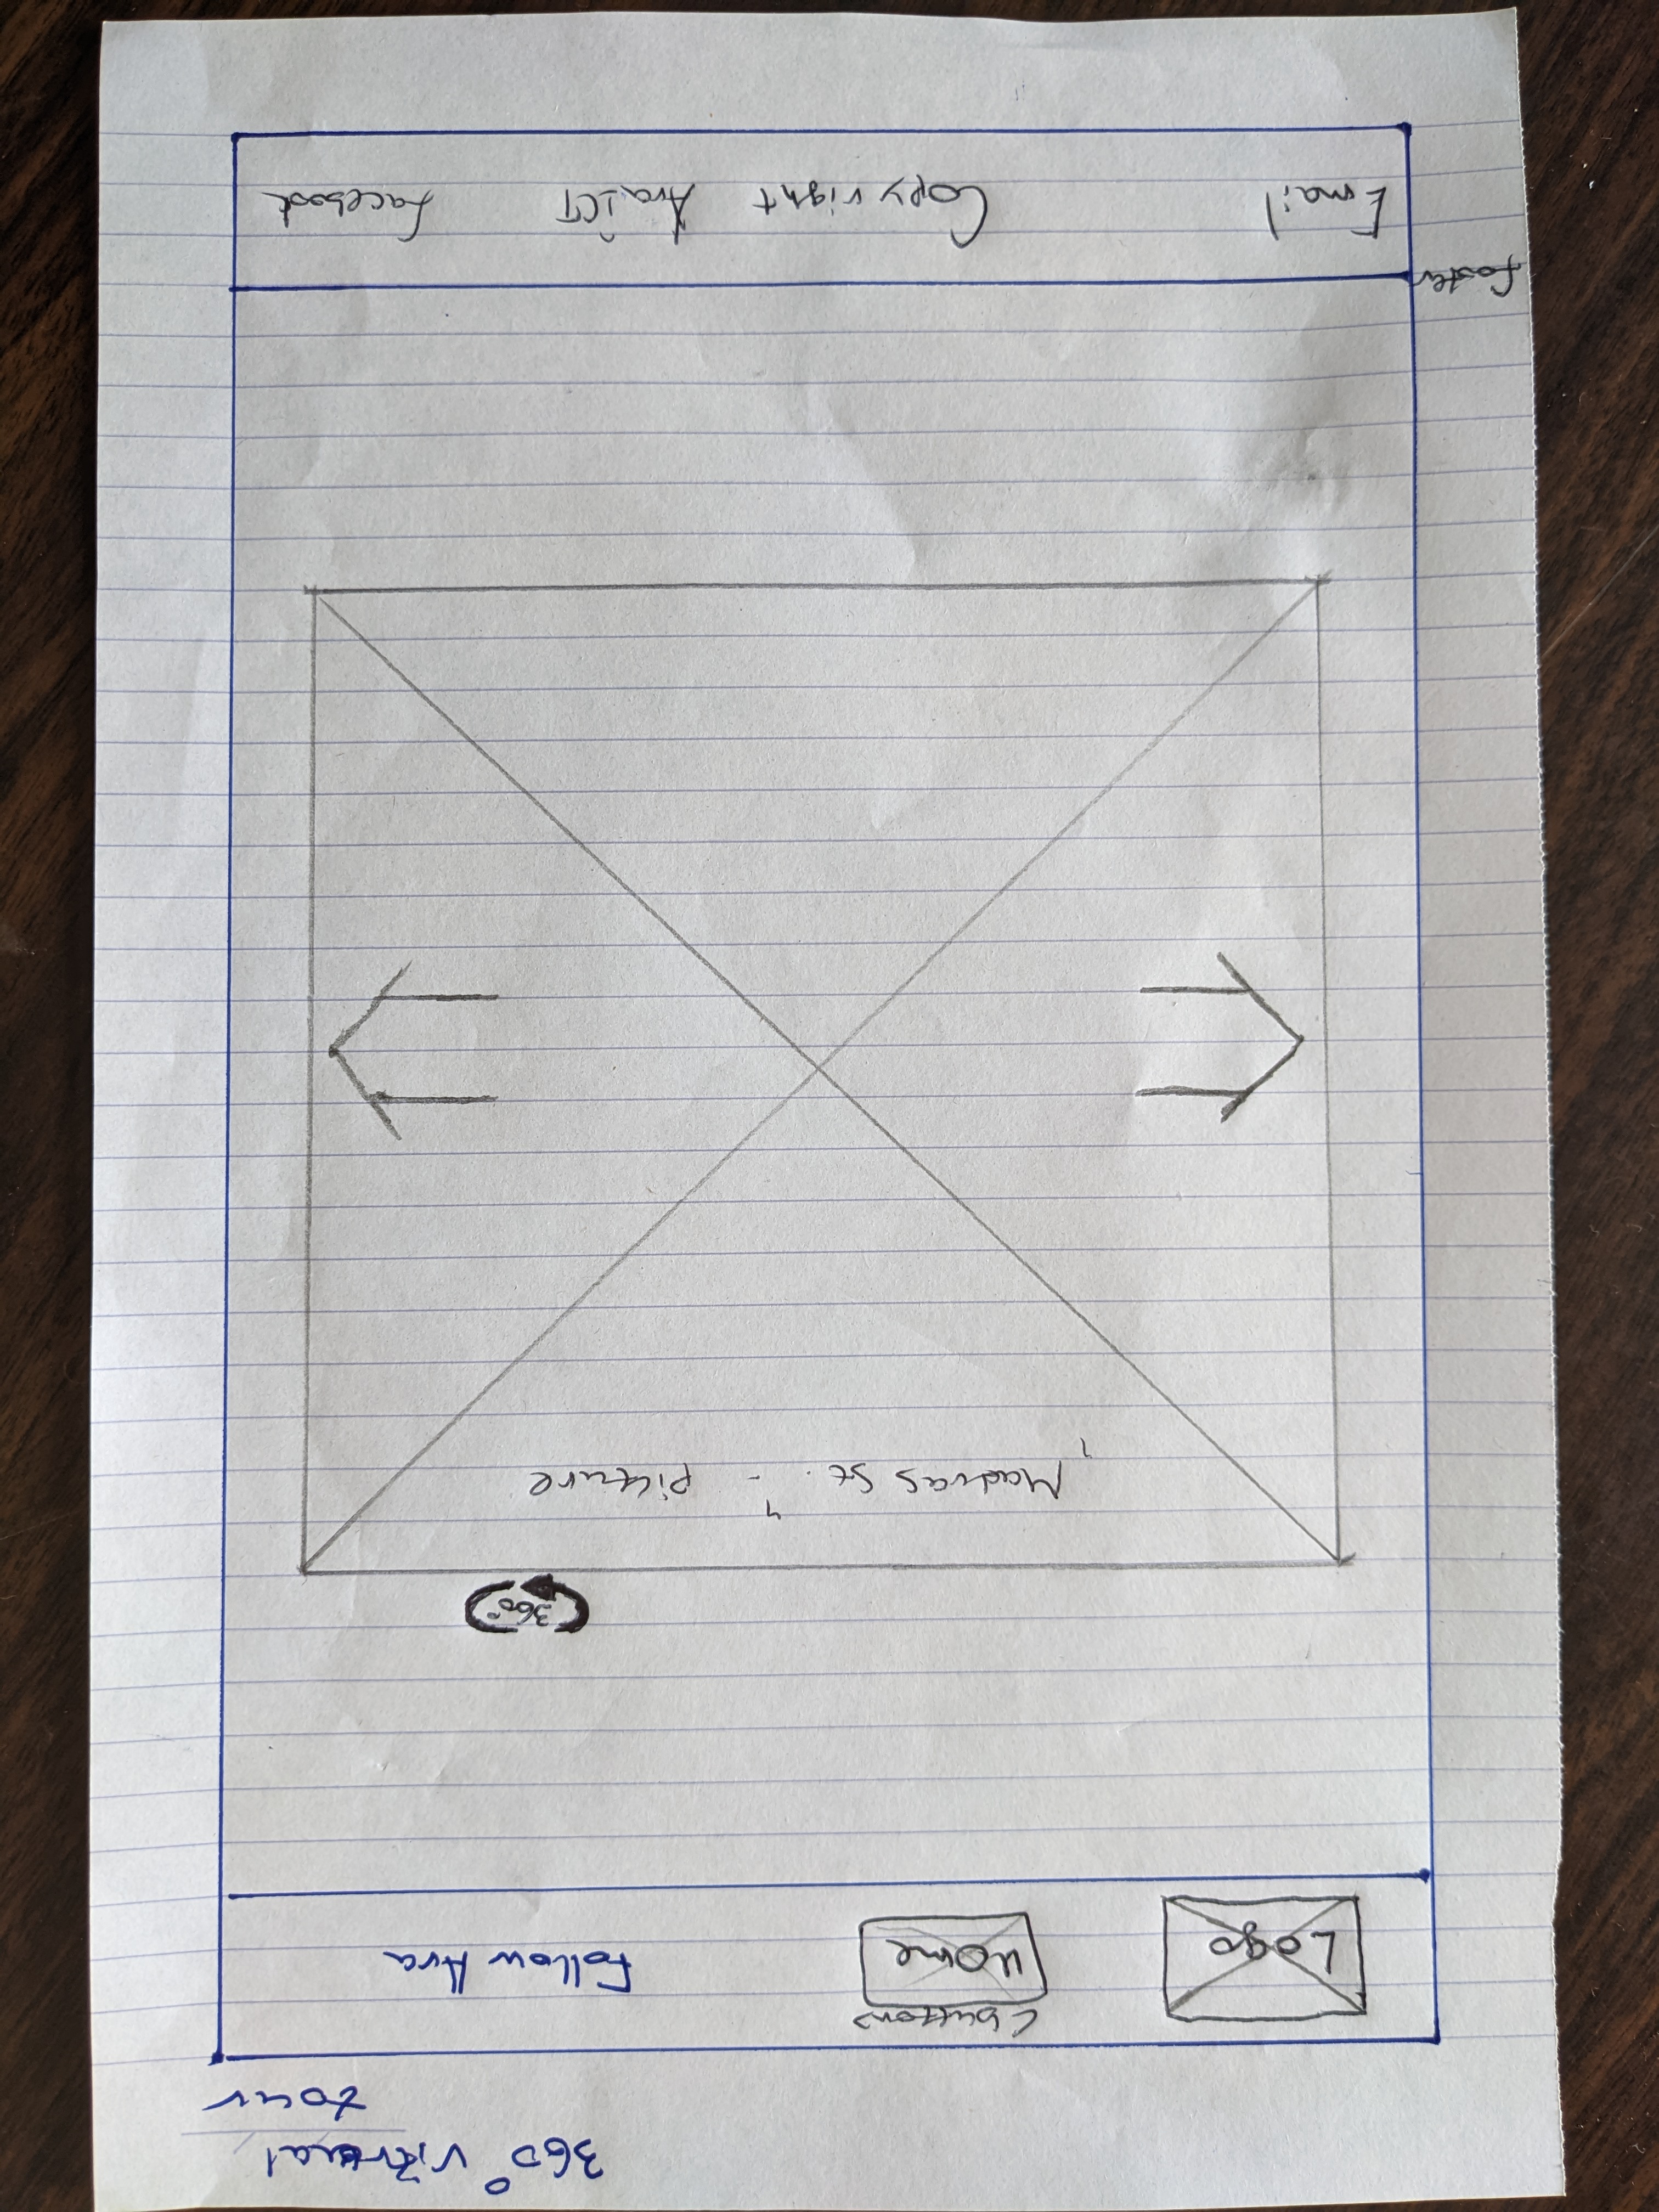 360° virtual
tour
<button>
Logo
Home
Follow Ara
360°
„Madras St." - picture
footer
Email
Copyright AraICT
facebook